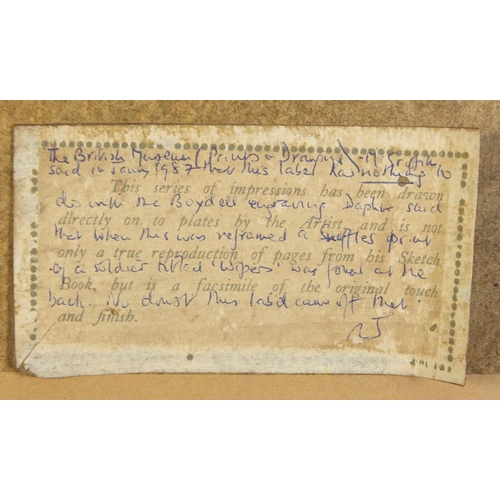 The British Museum (Prints & Drawings) - M Griffiths
said in January 1987 that this label has nothing to
This series of impressions has been drawn
do with the Boydell engraving Daphne said
directly on to plates by the Artist and is not
that when this was reframed a print
only a true reproduction of pages from his Sketch
of a soldier titled 'Wipers' was found at the
Book, but is a facsimile of the original touch
back. No doubt this label came off that.
and finish.
RJ